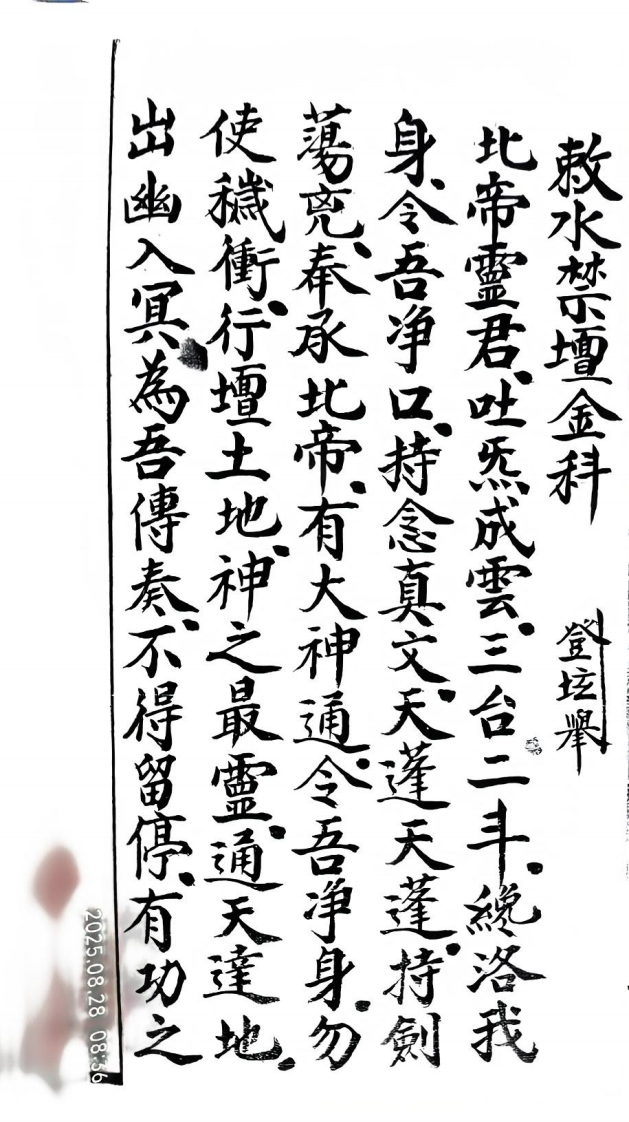 敕水禁壇金科 登坛舉
北帝靈君、吐炁成雲、三台二斗、纔洛我
身、令吾净口、持念真文、天蓬天蓬、持劍
蕩兇、奉承北帝、有大神通、令吾净身、勿
使穢衝、行壇土地、神之最靈、通天達地、
出幽入冥、為吾傳奏、不得留停、有功之
2025.08.28 08:36